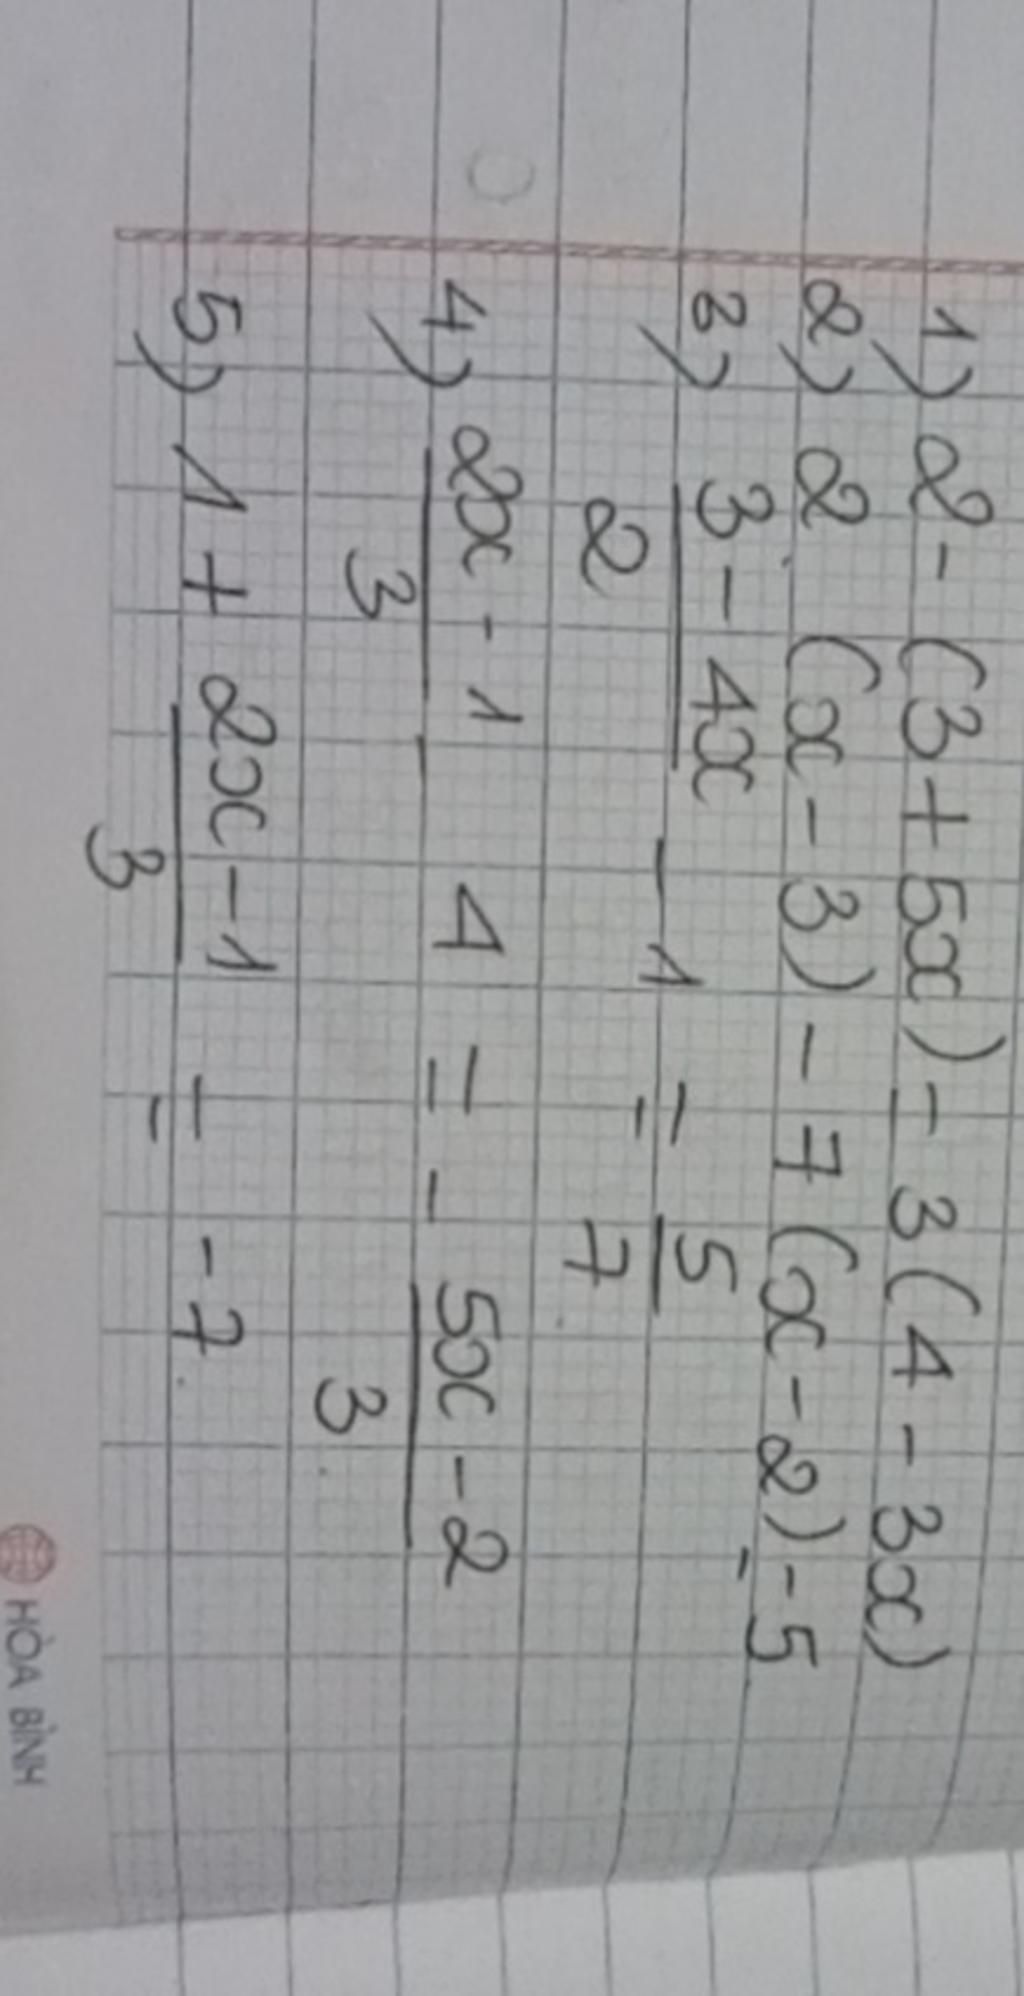 1) 2 - (3 + 5x) = 3(4 - 3x)
2) 2 (x - 3) - 7(x - 2) = - 5
3) \frac{3 - 4x}{2} - 1 = \frac{5}{7}
4) \frac{2x - 1}{3} - 4 = - \frac{5x - 2}{3}
5) 1 + \frac{2x - 1}{3} = - 7
HÒA BÌNH